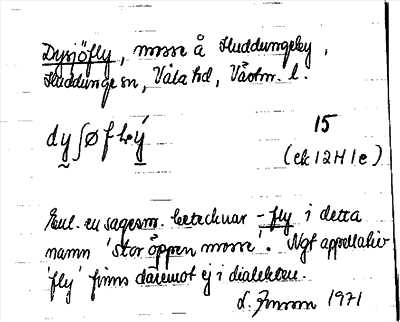 Dysjöfly, mosse å Huddungeby,
Huddunge sn, Våla hd, Västm. l.
dyʃøflý 15
(ek 12H 1e)
Enl. en sagesm. betecknar -fly i detta
namn 'stor öppen mosse'. Ngt appellativ
'fly' finns däremot ej i dialekten.
1971